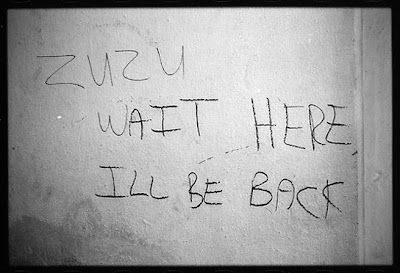 ZUZU
WAIT HERE
ILL BE BACK